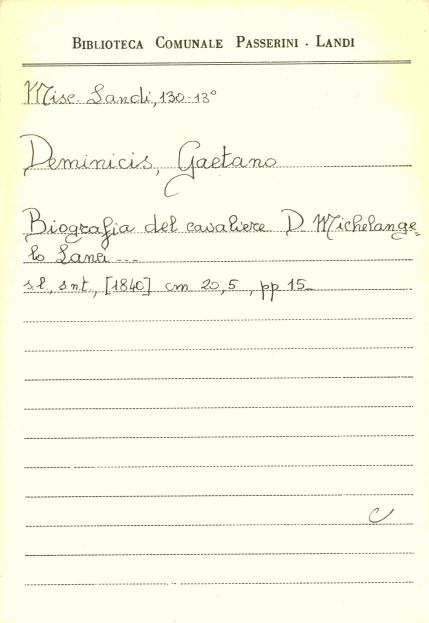 BIBLIOTECA COMUNALE PASSERINI - LANDI
Misc. Landi, 130-13°
Deminicis, Gaetano
Biografia del cavaliere D. Michelange-
lo Lanci ...
s.l., s.n.t., [1840] cm 20,5, pp 15
C